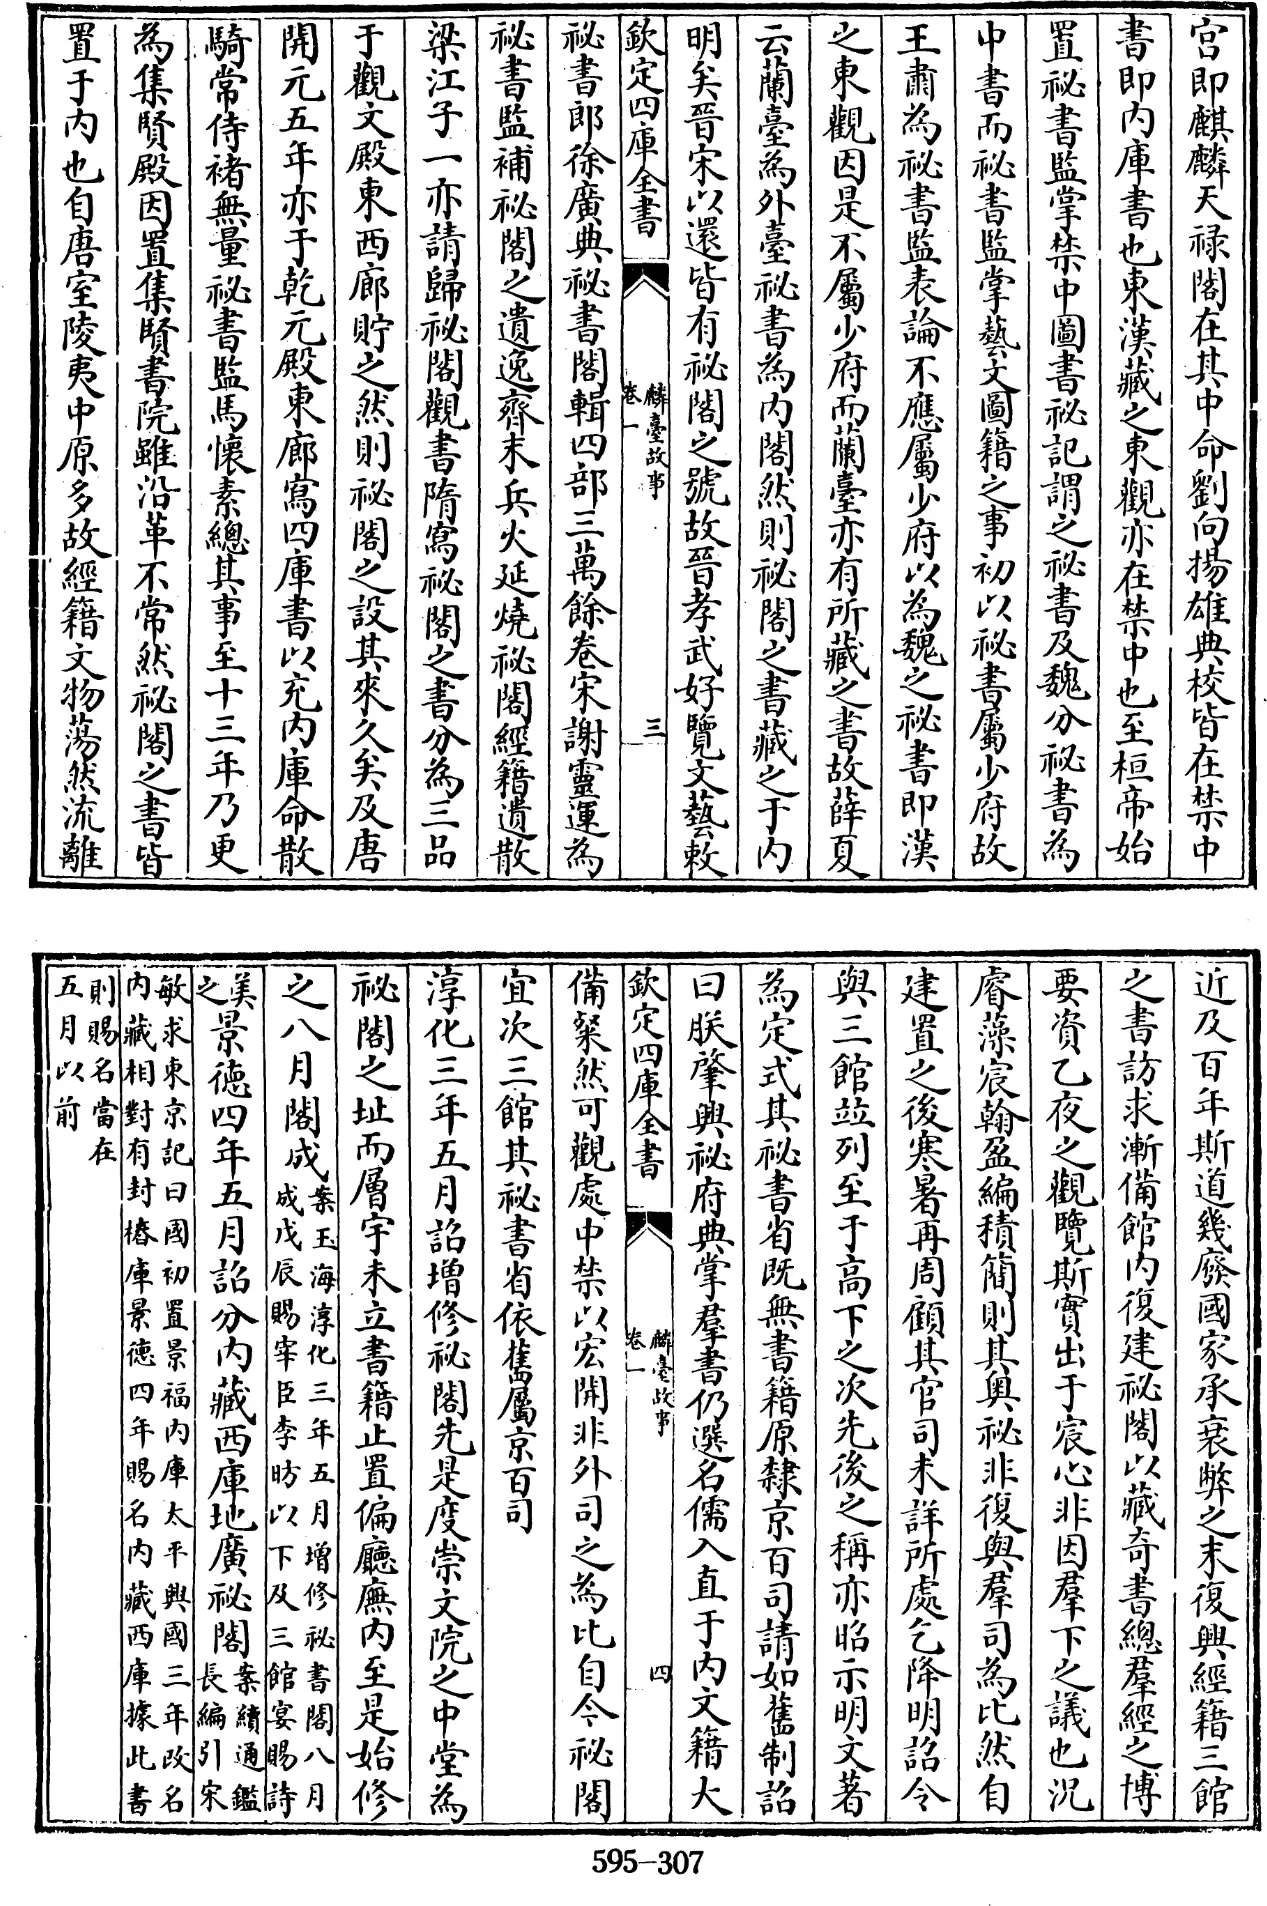 宮即麒麟天禄閣在其中命劉向揚雄典校皆在禁中
書即内庫書也東漢藏之東觀亦在禁中也至桓帝始
置祕書監掌禁中圖書祕記謂之祕書及魏分祕書為
中書而祕書監掌藝文圖籍之事初以祕書屬少府故
王肅為祕書監表論不應屬少府以為魏之祕書即漢
之東觀因是不屬少府而蘭臺亦有所藏之書故薛夏
云蘭臺為外臺祕書為内閣然則祕閣之書藏之于内
明矣晉宋以還皆有祕閣之號故晉孝武好覽文藝敕
欽定四庫全書
麟臺故事
卷一
三
祕書郎徐廣典祕書閣輯四部三萬餘卷宋謝靈運為
祕書監補祕閣之遺逸齊末兵火延燒祕閣經籍遺散
梁江子一亦請歸祕閣觀書隋寫祕閣之書分為三品
于觀文殿東西廊貯之然則祕閣之設其來久矣及唐
開元五年亦于乾元殿東廊寫四庫書以充内庫命散
騎常侍褚無量祕書監馬懷素總其事至十三年乃更
為集賢殿因置集賢書院雖沿革不常然祕閣之書皆
置于内也自唐室陵夷中原多故經籍文物蕩然流離
近及百年斯道幾廢國家承衰弊之末復興經籍三館
之書訪求漸備館内復建祕閣以藏奇書總羣經之博
要資乙夜之觀覽斯實出于宸心非因羣下之議也況
睿藻宸翰盈編積簡則其奥祕非復與羣司為比然自
建置之後寒暑再周顧其官司未詳所處乞降明詔令
與三館竝列至于高下之次先後之稱亦昭示明文著
為定式其祕書省既無書籍原隸京百司請如舊制詔
曰朕肇興祕府典掌羣書仍選名儒入直于内文籍大
欽定四庫全書
麟臺故事
卷一
四
備粲然可觀處中禁以宏開非外司之為比自今祕閣
宜次三館其祕書省依舊屬京百司
淳化三年五月詔增修祕閣先是度崇文院之中堂為
祕閣之址而層宇未立書籍止置偏廳廡内至是始修
之八月閣成案玉海淳化三年五月增修祕書閣八月
成戊辰賜宰臣李昉以下及三館宴賜詩
美景德四年五月詔分内藏西庫地廣祕閣案續通鑑
之長編引宋
敏求東京記曰國初置景福内庫太平興國三年改名
内藏相對有封樁庫景德四年賜名内藏西庫據此書
則賜名當在
五月以前
595-307